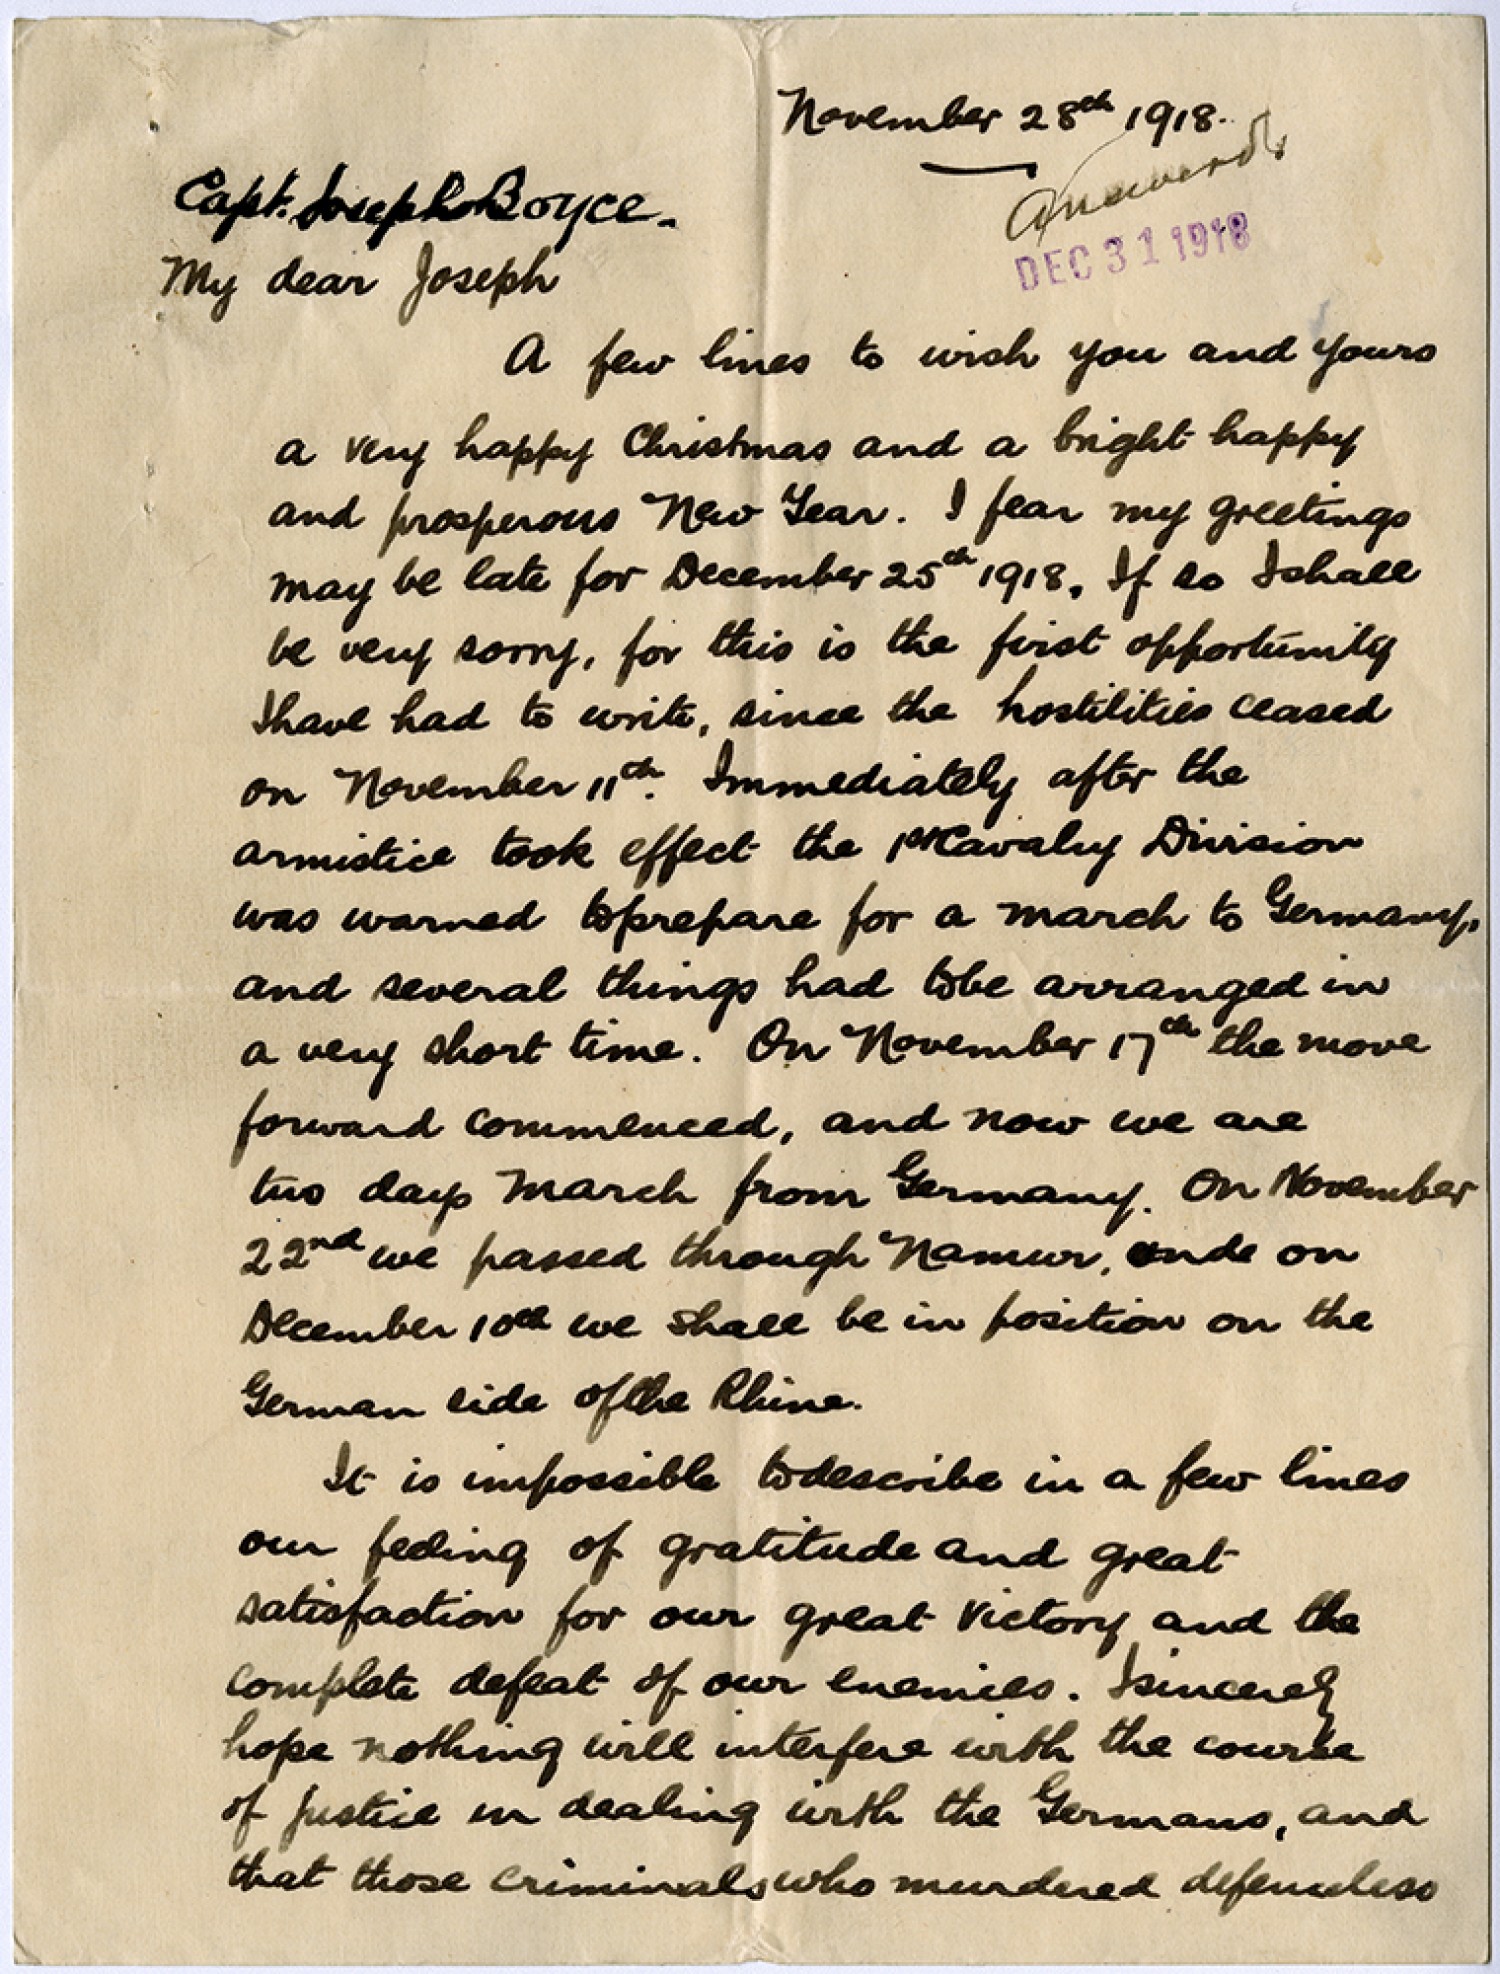 November 28th 1918.
Answered
DEC 31 1918
Capt. Joseph Boyce.
My dear Joseph
A few lines to wish you and yours
a very happy Christmas and a bright happy
and prosperous New Year. I fear my greetings
may be late for December 25th 1918. If so I shall
be very sorry, for this is the first opportunity
I have had to write, since the hostilities ceased
on November 11th. Immediately after the
armistice took effect the 1st Cavalry Division
was warned to prepare for a march to Germany,
and several things had to be arranged in
a very short time. On November 17th the move
forward commenced, and now we are
two days march from Germany. On November
22nd we passed through Namur, and on
December 10th we shall be in position on the
German side of the Rhine.
It is impossible to describe in a few lines
our feeling of gratitude and great
satisfaction for our great victory and the
complete defeat of our enemies. I sincerely
hope nothing will interfere with the course
of justice in dealing with the Germans, and
that those criminals who murdered defenceless